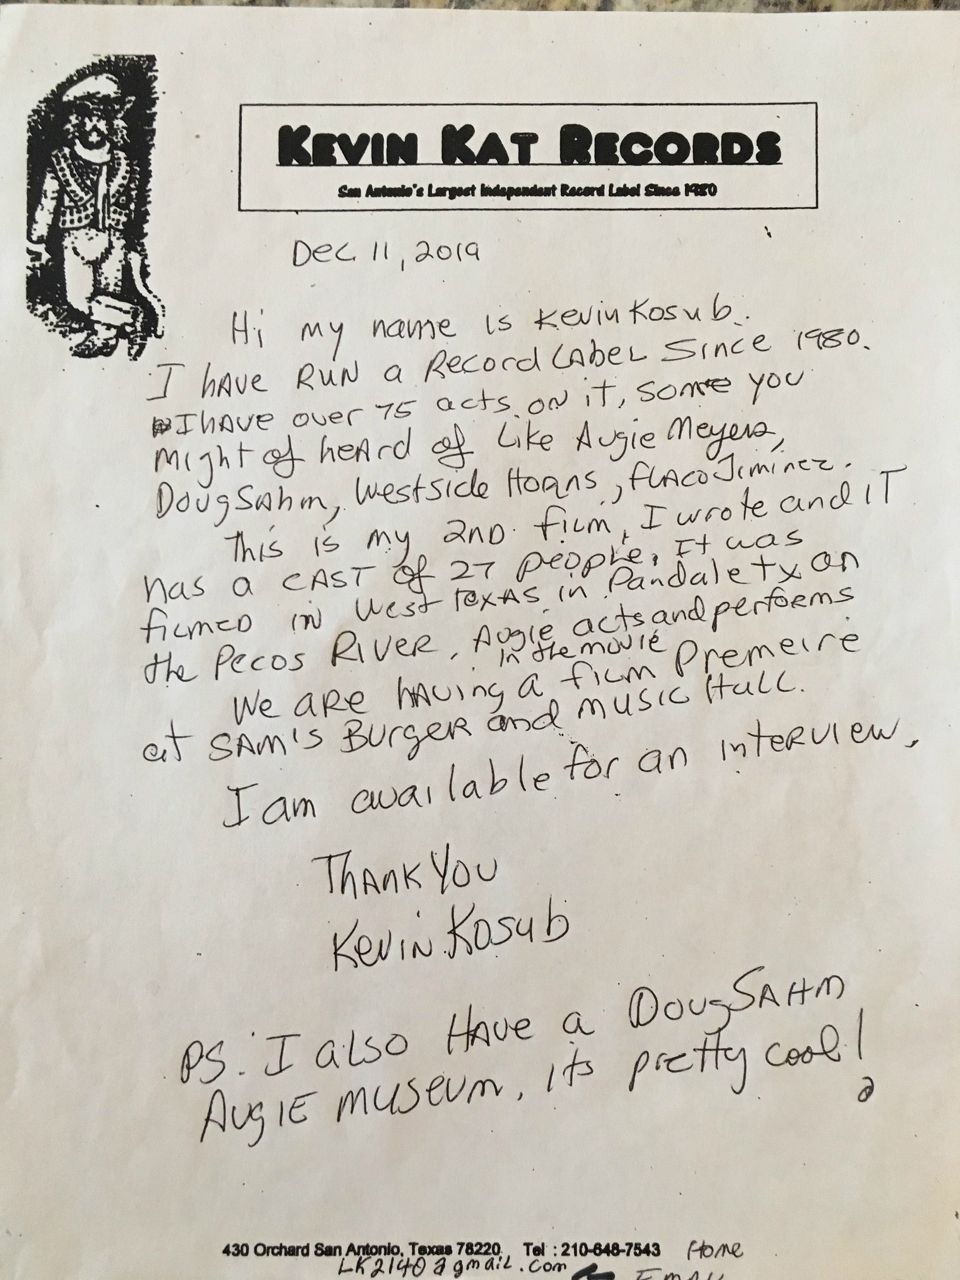 KEVIN KAT RECORDS
San Antonio's Largest Independent Record Label Since 1980
Dec 11, 2019
Hi my name is Kevin Kosub.
I have RUN a Record Label Since 1980.
I have over 75 acts on it, some you
might of heard of Like Augie Meyers,
Doug Sahm, Westside Horns, Flaco Jiminez.
This is my 2nd film, I wrote and IT
has a CAST of 27 people. It was
filmed in West Texas in Pandale tx on
the Pecos River. Augie acts and performs
in the movie
We are having a film Premeire
at SAM'S Burger and music Hall.
I am available for an interview.
Thank You
Kevin Kosub
PS. I also HAVE a Doug SAHM
Augie museum, its pretty cool!
430 Orchard San Antonio, Texas 78220 Tel : 210-648-7543 Home
LK2140@gmail.com
EMAIL